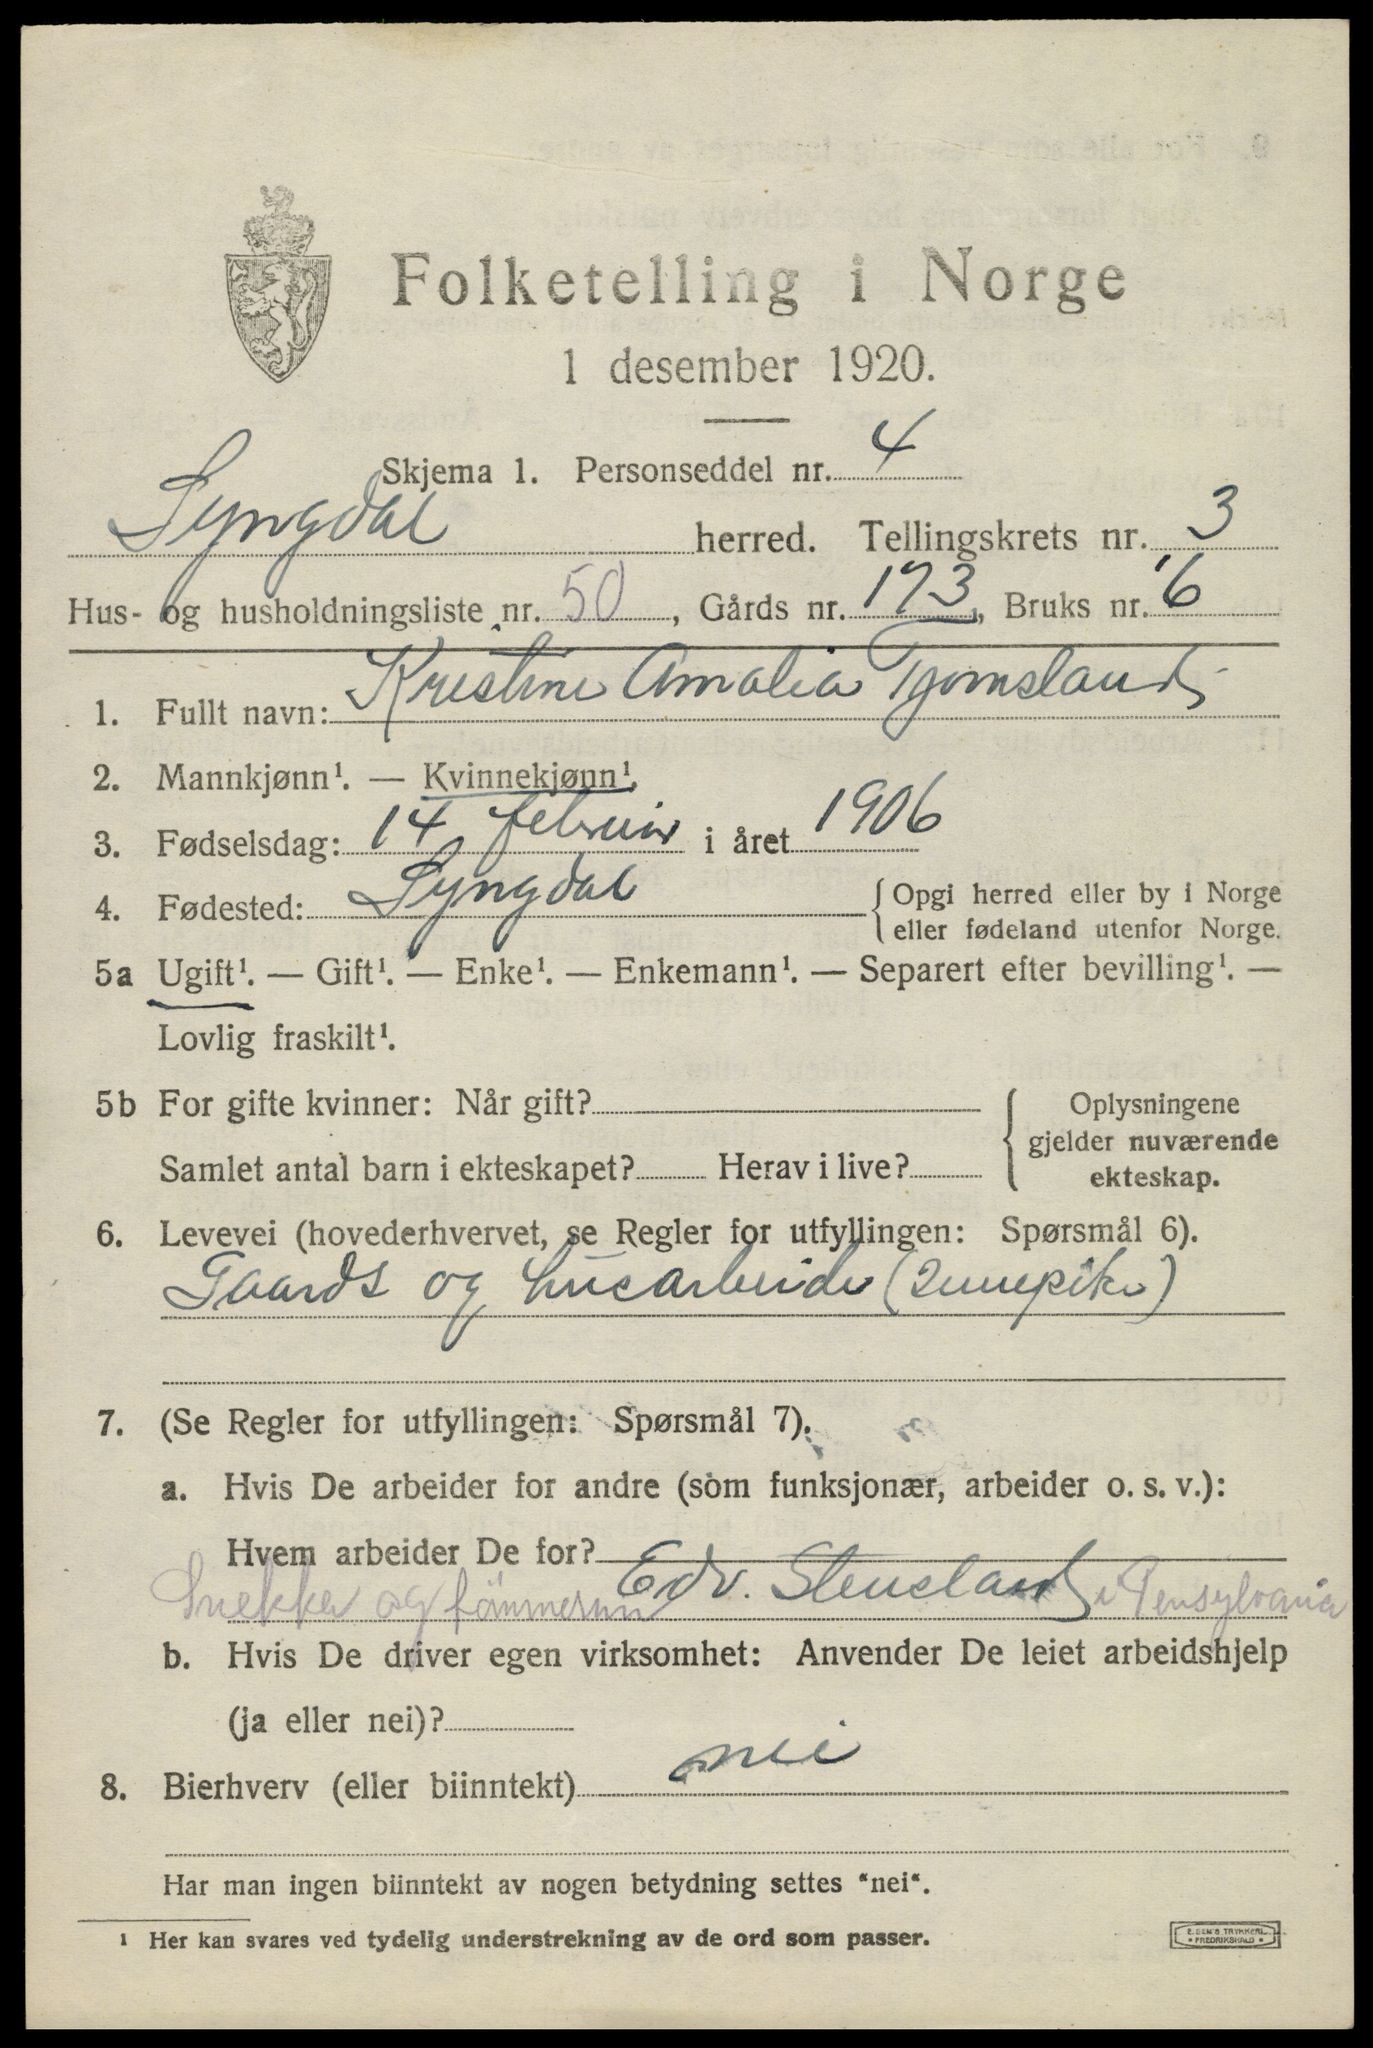 Folketelling i Norge
1 desember 1920.
Skjema 1. Personseddel nr. 4
Lyngdal herred. Tellingskrets nr. 3
Hus- og husholdningsliste nr. 50, Gårds nr. 173, Bruks nr. 6
1. Fullt navn: Kristine Amalia Tjomsland
2. Mannkjønn¹. — Kvinnekjønn¹.
3. Fødselsdag: 14 februar i året 1906
4. Fødested: Lyngdal {Opgi herred eller by i Norge
eller fødeland utenfor Norge.
5a Ugift¹. — Gift¹. — Enke¹. — Enkemann¹. — Separert efter bevilling¹. —
Lovlig fraskilt¹.
5b For gifte kvinner: Når gift? { Oplysningene
gjelder nuværende
Samlet antal barn i ekteskapet? Herav i live?
ekteskap.
6. Levevei (hovederhvervet, se Regler for utfyllingen: Spørsmål 6).
Gaards og husarbeide
7. (Se Regler for utfyllingen: Spørsmål 7).
a. Hvis De arbeider for andre (som funksjonær, arbeider o. s. v.):
Hvem arbeider De for?
Snekker og tømmermn Edv. Stensland i Pensylvania
b. Hvis De driver egen virksomhet: Anvender De leiet arbeidshjelp
(ja eller nei)?
8. Bierhverv (eller biinntekt) nei
Har man ingen biinntekt av nogen betydning settes "nei".
¹ Her kan svares ved tydelig understrekning av de ord som passer.
SEM'S TRYKKERI
• FREDRIKSHALD •